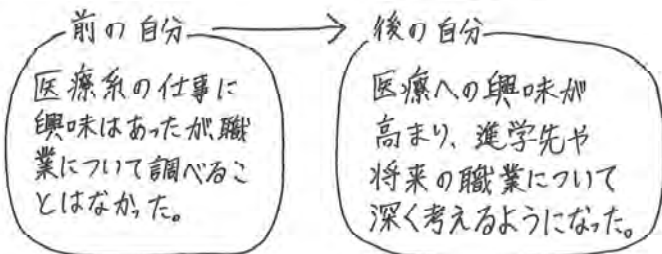 前の自分
後の自分
医療系の仕事に
興味はあったが、職
業について調べるこ
とはなかった。
医療への興味が
高まり、進学先や
将来の職業について
深く考えるようになった。